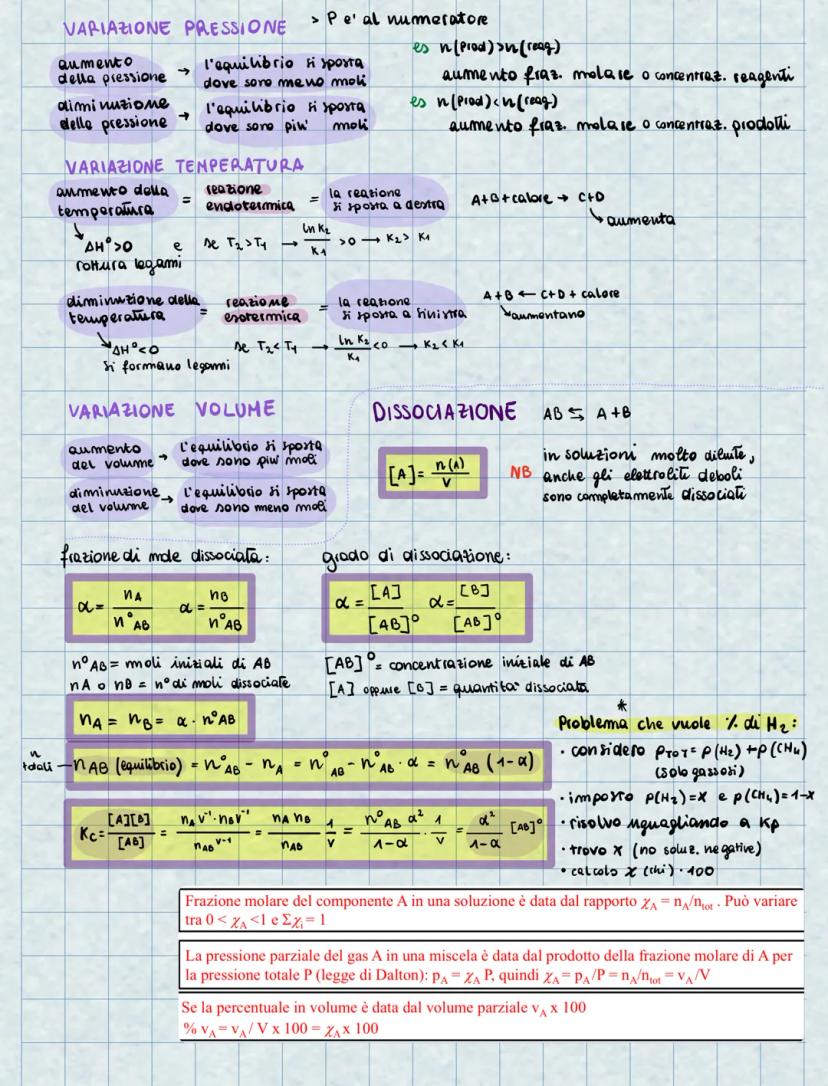 VARIAZIONE PRESSIONE > P e' al numeratore
aumento della pressione → l'equilibrio si sposta dove sono meno moli
diminuzione della pressione → l'equilibrio si sposta dove sono piu' moli
es n(prod)>n(reag)
aumento fraz. molare o concentraz. reagenti
es n(prod)<n(reag)
aumento fraz. molare o concentraz. prodotti
VARIAZIONE TEMPERATURA
aumento della temperatura = reazione endotermica = la reazione si sposta a destra
A+B+calore → C+D
↘ aumenta
↘ ΔH°>0 e se T₂>T₁ → ln K₂/K₁ >0 → K₂> K₁
rottura legami
diminuzione della temperatura = reazione esotermica = la reazione si sposta a sinistra
A+B ← C+D+calore
↘ aumentano
↘ ΔH°<0 se T₂<T₁ → ln K₂/K₁ <0 → K₂<K₁
si formano legami
VARIAZIONE VOLUME
aumento del volume → l'equilibrio si sposta dove sono piu' moli
diminuzione del volume → l'equilibrio si sposta dove sono meno moli
DISSOCIAZIONE AB ⇆ A+B
[A]= n(A)/V
NB in soluzioni molto diluite,
anche gli elettroliti deboli
sono completamente dissociati
frazione di mole dissociata:
α= nA/n°AB α= nB/n°AB
n°AB= moli iniziali di AB
nA o nB = n° di moli dissociate
grado di dissociazione:
α= [A]/[AB]° α= [B]/[AB]°
[AB]°= concentrazione iniziale di AB
[A] oppure [B] = quantita' dissociata
nA = nB = α · n°AB
n totali — nAB (equilibrio) = n°AB - nA = n°AB - n°AB · α = n°AB (1-α)
Kc= [A][B]/[AB] = nA V⁻¹ · nB V⁻¹/nAB V⁻¹ = nA nB/nAB 1/V = n°AB α²/1-α · 1/V = α²/1-α [AB]°
*
Problema che vuole % di H₂:
· considero pTOT= p(H₂)+p(CH₄)
(solo gassosi)
· imposto p(H₂)=x e p(CH₄)=1-x
· risolvo uguagliando a Kp
· trovo x (no soluz. negative)
· calcolo χ (chi) · 100
Frazione molare del componente A in una soluzione è data dal rapporto χA = nA/ntot . Può variare
tra 0 < χA <1 e Σχi = 1
La pressione parziale del gas A in una miscela è data dal prodotto della frazione molare di A per
la pressione totale P (legge di Dalton): pA = χA P, quindi χA = pA/P = nA/ntot = vA/V
Se la percentuale in volume è data dal volume parziale vA x 100
% vA = vA/ V x 100 = χA x 100